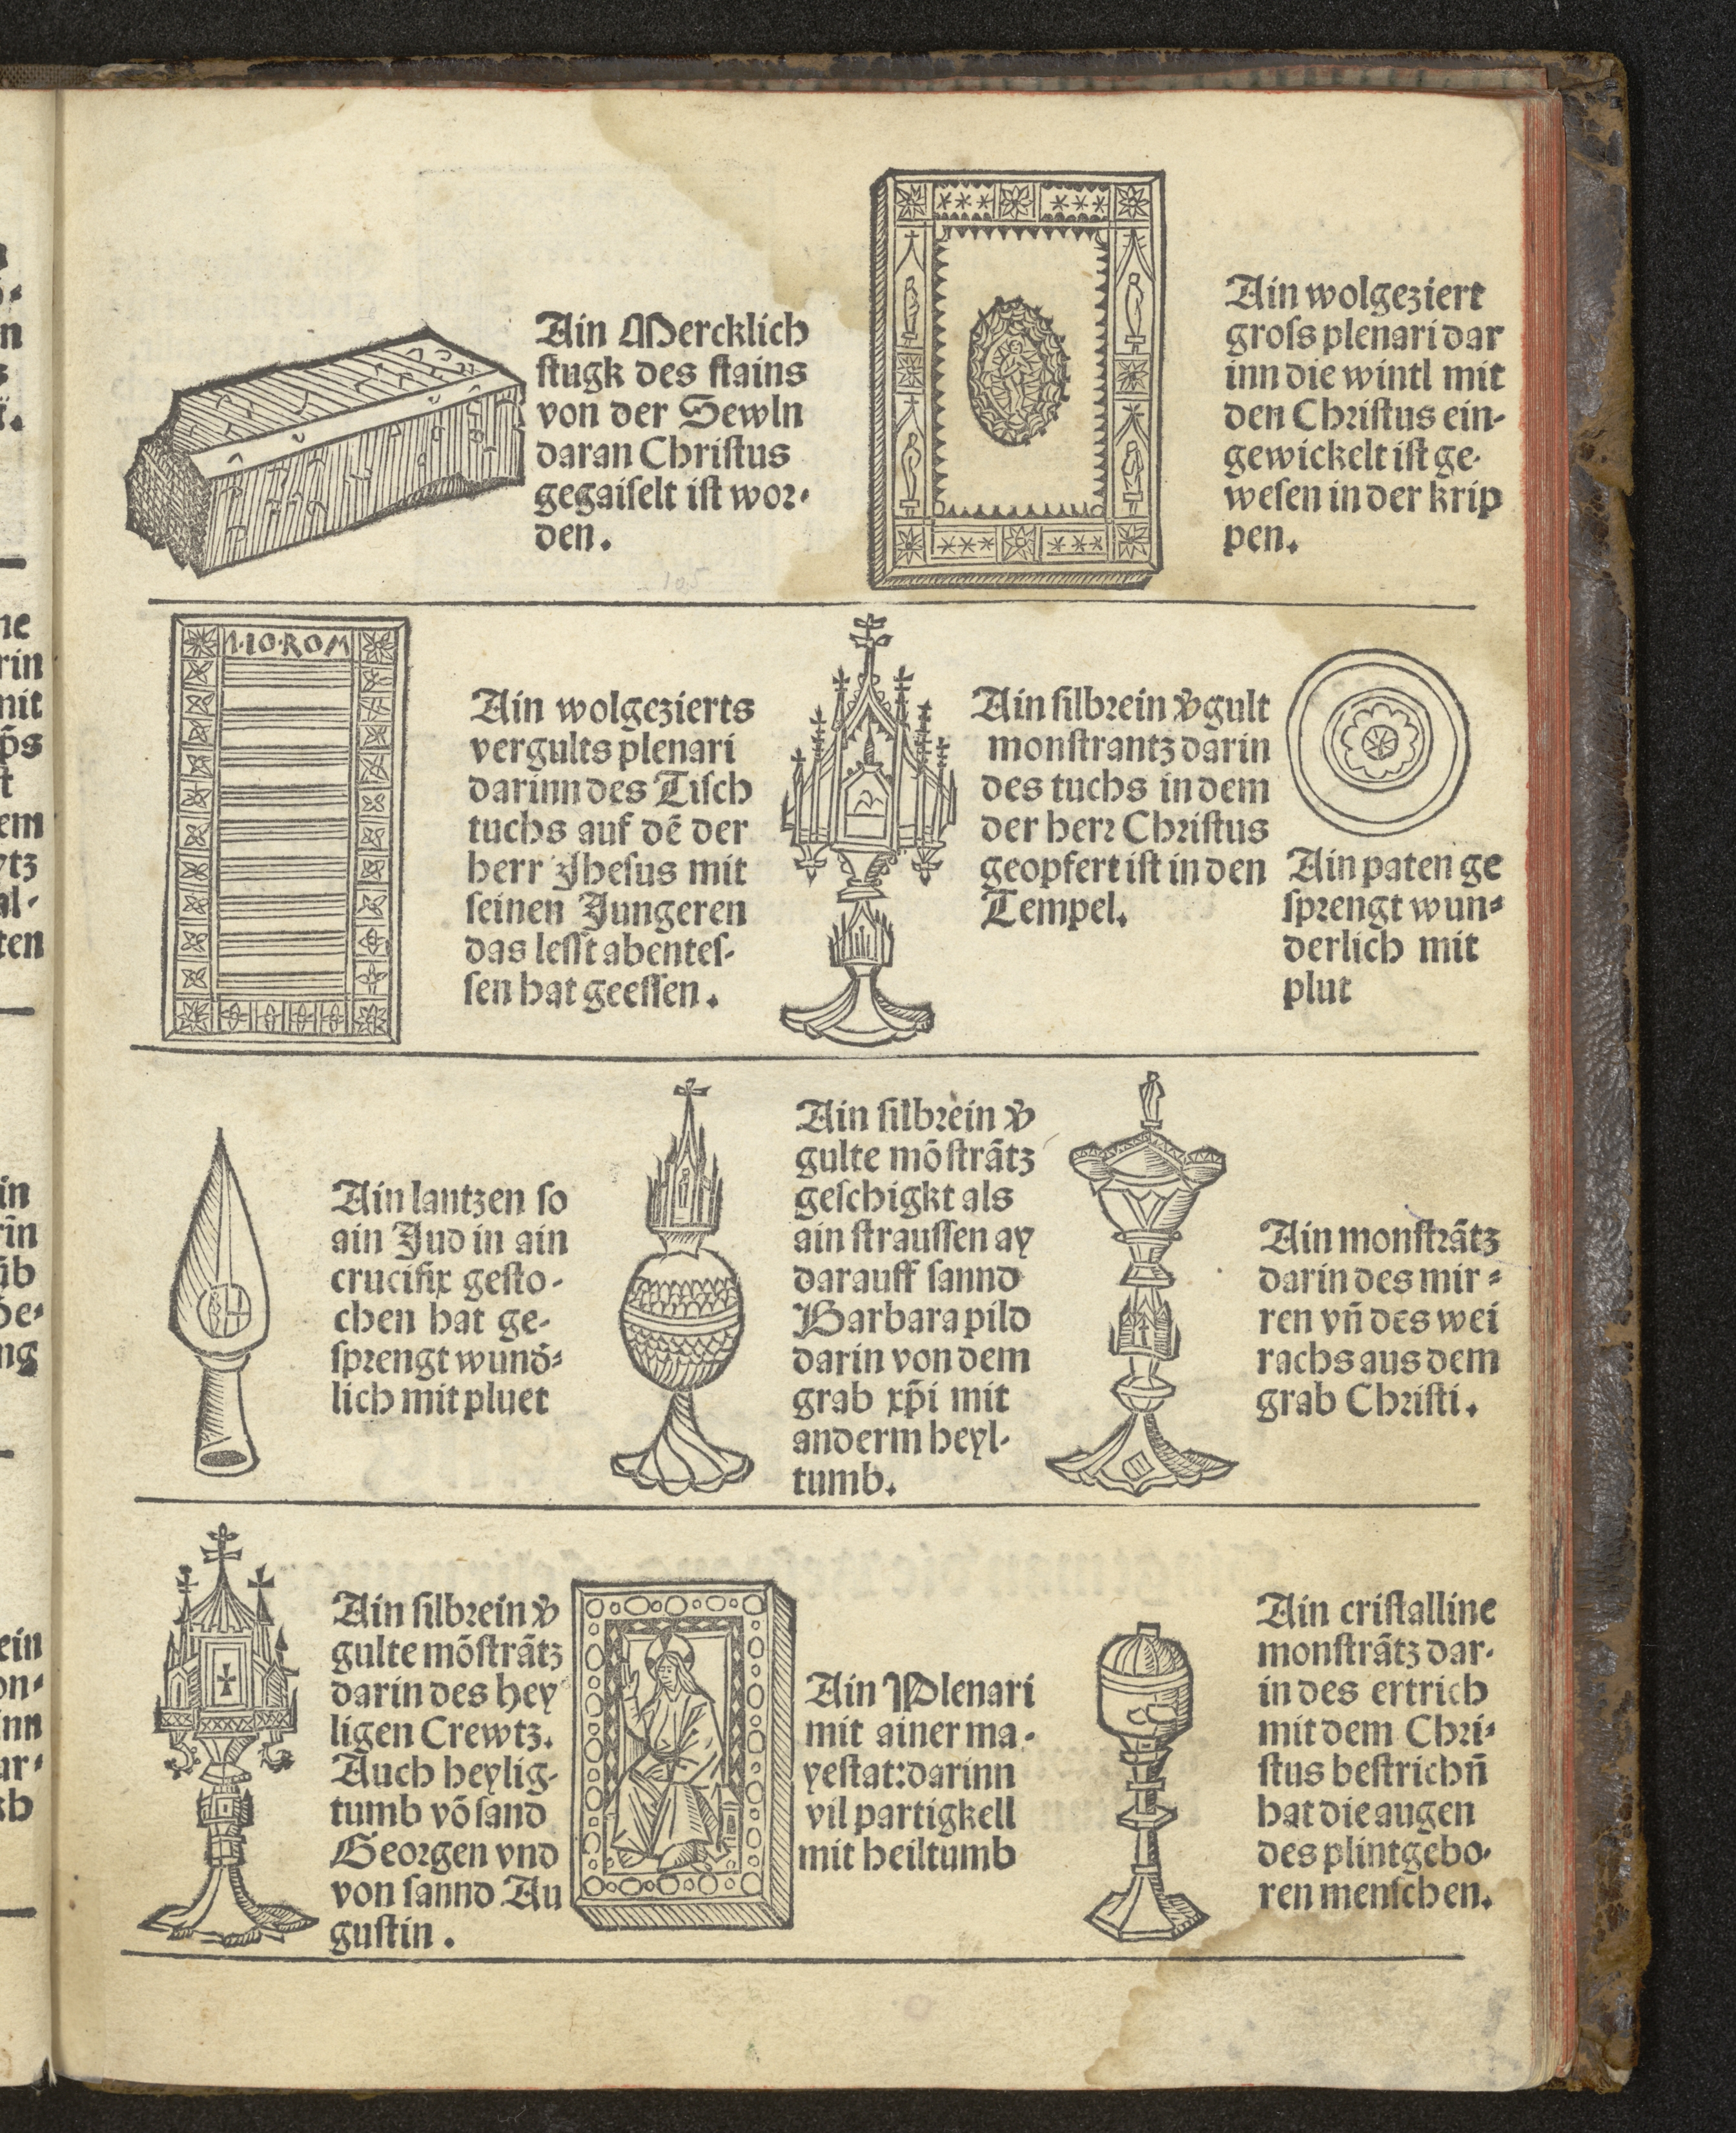 Ain Mercklich
ſtugk des ſtains
von der Sewln
daran Chriſtus
gegaiſelt iſt wor-
den.
Ain wolgeziert
groſs plenari dar
inn die wintl mit
den Chriſtus ein-
gewickelt iſt ge-
weſen in der krip
pen.
·IO·ROM
Ain wolgezierts
vergults plenari
darinn des Tiſch
tuchs auf dẽ der
herr Jheſus mit
ſeinen Jungeren
das leſſt abenteſ-
ſen hat geeſſen.
Ain ſilbrein v̈gult
monſtrantz darin
des tuchs in dem
der herr Chriſtus
geopfert iſt in den
Tempel.
Ain paten ge
ſprengt wun-
derlich mit
plut
Ain lantzen ſo
ain Jud in ain
crucifix geſto-
chen hat ge-
ſprengt wund̄-
lich mit pluet
Ain ſilbrein v̈
gulte mõſtrãtz
geſchigkt als
ain ſtrauſſen ay
darauff ſannd
Barbara pild
darin von dem
grab xp̄i mit
anderm heyl-
tumb.
Ain monſtrãtz
darin des mir-
ren vn̄ des wei
rachs aus dem
grab Chriſti.
Ain ſilbrein v̈
gulte mõſtrãtz
darin des hey
ligen Crewtz.
Auch heylig-
tumb võ ſand
Georgen vnd
von ſannd Au
guſtin.
Ain Plenari
mit ainer ma-
yeſtat:darinn
vil partigkell
mit heiltumb
Ain criſtalline
monſtrãtz dar-
in des ertrich
mit dem Chri-
ſtus beſtrichn̄
hat die augen
des plintgebo-
ren menſchen.